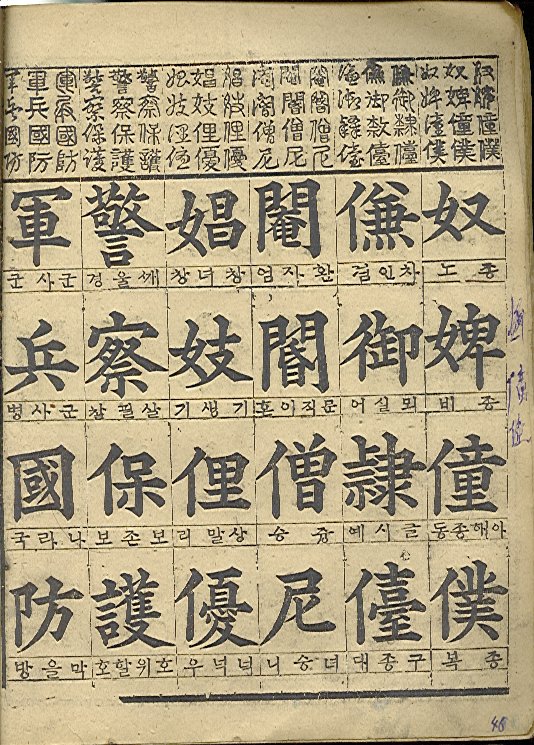 奴婢僮僕
奴婢僮僕
奴婢僮僕
傔御隷儓
傔御隷儓
閹閽僧尼
閹閽僧尼
閹閽僧尼
娼妓俚優
娼妓俚優
娼妓俚優
警察保護
警察保護
警察保護
軍兵國防
軍兵國防
軍兵國防
奴
종 노
婢
종 비
僮
아해종 동
僕
종 복
傔
차인 겸
御
뫼실 어
隷
글시 예
儓
구종 대
閹
환자 엄
閽
문직이 혼
僧
중 승
尼
녀승 니
娼
창녀 창
妓
기생 기
俚
상말 리
優
넉넉 우
警
쎄울 경
察
살필 찰
保
보존 보
護
호위할 호
軍
군사 군
兵
군사 병
國
나라 국
防
막을 방
48